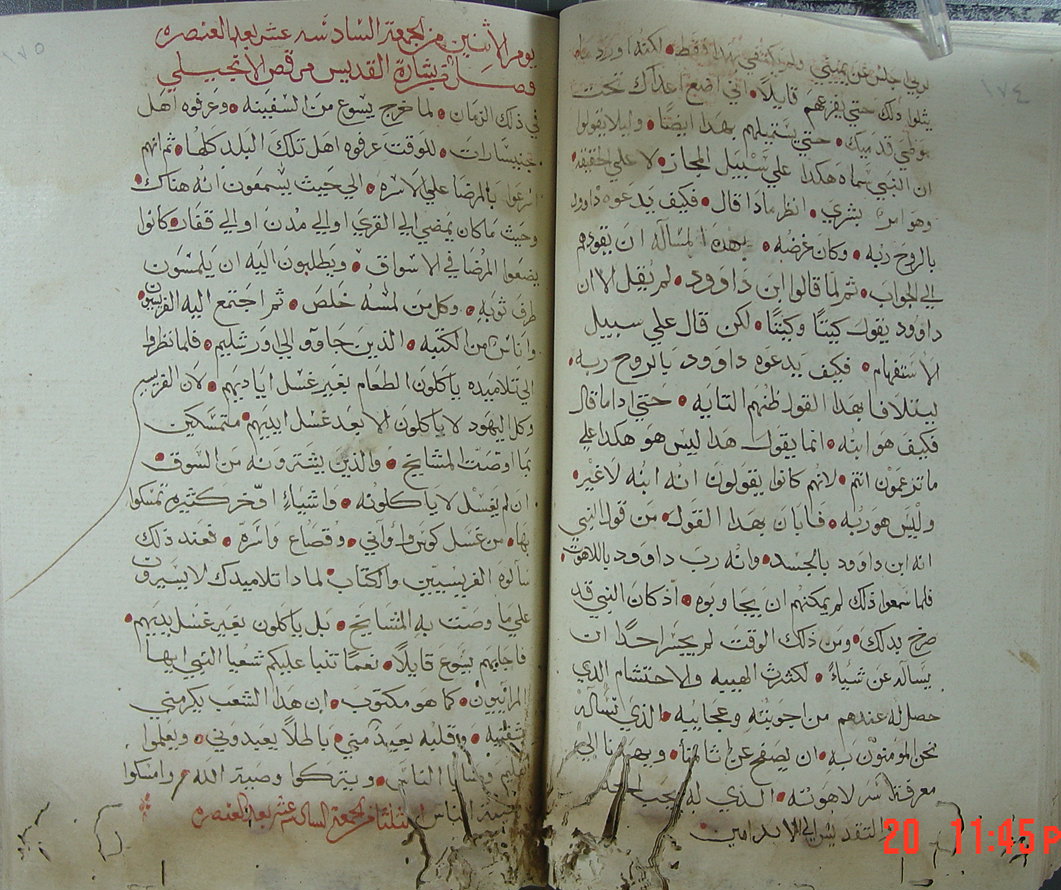 ١٧٤
لربي اجلس عن يميني ولم يكتفي بهذا فقط • لكنه اورد ما
يتلوا ذلك حتي يفزعهم قايلاً • اني اضع اعداك تحت
موطي قدميك • حتي يستميلهم بهذا ايضًا • وليلا يقولوا
ان النبي سماه هكذا علي سبيل المجاز • لا علي الحقيقه
وهو اسن بشري • انظر ماذا قال • فكيف يدعوه داوود
بالروح ربه • وكان غرضه • بهذه المسأله ان يقودهم
الي الجواب • ثم لما قالوا ابن داوود • لم يقل الان
داوود يقول كيتًا وكيتًا • لكن قال علي سبيل
الاستفهام • فكيف يدعوه داوود بالروح ربه •
ليتلافا بهذا القول ظنهم التايه • حتي اذا ما قال
فكيف هو ابنه • انما يقول هذا ليس هو هكذا علي
ما تزعمون انتم • لانهم كانوا يقولون انه ابنه لا غير •
وليس هو ربه • فابان بهذا القول • من قول النبي
انه ابن داوود بالجسد • وانه رب داوود باللاهوت •
فلما سمعوا ذلك لم يمكنهم ان يجاوبوه • اذ كان النبي قد
صرح بذلك • ومن ذلك الوقت لم يجسر احدًا ان
يسأله عن شياءً • لكثرت الهيبه والاحتشام الذي
حصل له عندهم من اجوبته وعجايبه • الذي نسأله
نحن المومنون به • ان يصفح عن اثامنا • ويهدينا الي
معرفة سر لاهوته • الذي له يجب المجد
والتقديس الي الابد امين •
١٧٥
يوم الاثنين من الجمعة السادسه عشر بعد العنصره
فصل من بشارة القديس مرقص الانجيلي
في ذلك الزمان • لما خرج يسوع من السفينه • وعرفوه اهل
جنيسارات • للوقت عرفوه اهل تلك البلد كلها • ثم انهم
اسرعوا بالمرضا علي الاسره • الي حيث يسمعون انه هناك •
وحيث ما كان يمضي الي القري او الي مدن او الي قفار • كانوا
يضعوا المرضا في الاسواق • ويطلبون اليه ان يلمسون
طرف ثوبه • وكل من لمسه خلص • ثم اجتمع اليه الفريسيين •
واناس من الكتبه • الذين جاوو الي اورشليم • فلما نظروا
الي تلاميذه ياكلون الطعام بغير غسل اياديهم • لان الفريسيين
وكل اليهود لا ياكلون الا بعد غسل ايديهم • متمسكين
بما اوصت المشايخ • والذين يشترونه من السوق •
ان لم يغسل لا ياكلونه • واشياءً اخر كثيره تمسكوا
بها • من غسل كووس واواني • وقصاع واسره • فعند ذلك
سألوه الفريسيين والكتاب • لماذا تلاميذك لا يسيرون
علي ما وصت به المشايخ • بل ياكلون بغير غسل يديهم •
فاجابهم يسوع قايلاً • نعمًا تنبا عليكم شعيا النبي ايها
المرائيون • كما هو مكتوب • ان هذا الشعب يكرمني
بشفتيه • وقلبه بعيد مني • باطلاً يعبدوني • ويعلموا
الناس • ويتركوا وصية الله • وامسكوا
الناس الثلثا من الجمعة السادسه عشر بعد العنصره
20 11:45 P